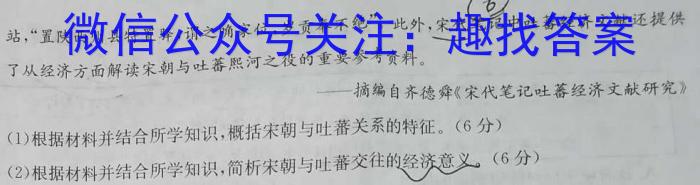 站,“置
微信公众号关注:趣找答案
还提供
了从经济方面解读宋朝与吐蕃熙河之役的重要参考资料。
——摘编自齐德舜《宋代笔记吐蕃经济文献研究》
(1)根据材料并结合所学知识,概括宋朝与吐蕃关系的特征。(6分)
(2)根据材料并结合所学知识,简析宋朝与吐蕃交往的经济意义。(6分)